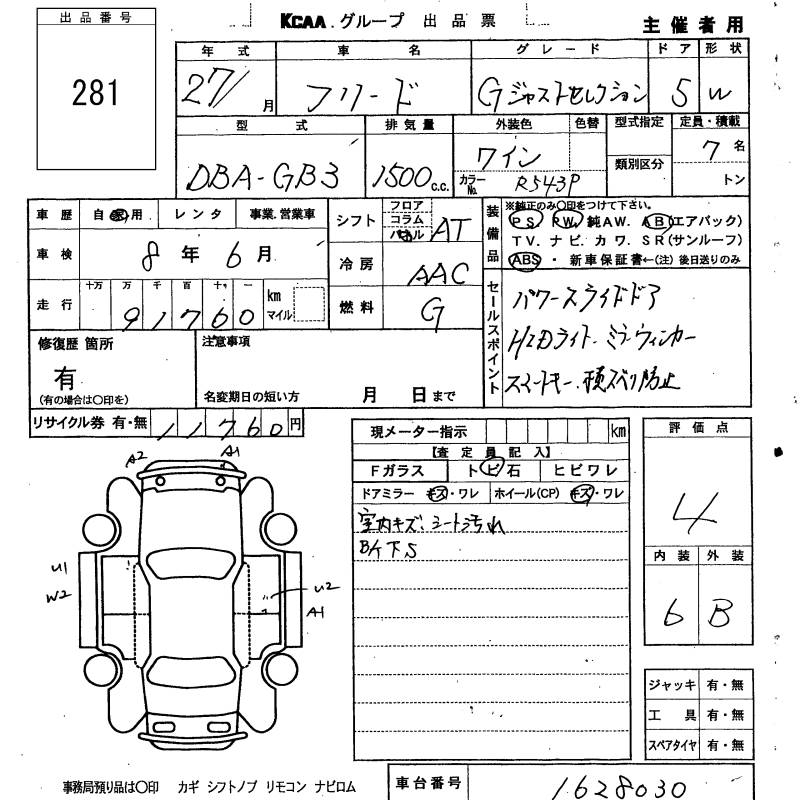 出品番号
281
KCAA.グループ 出品票
主催者用
年式 車名 グレード ドア 形状
27/ 月 フリード Gジャストセレクション 5 W
型式 排気量 外装色 色替 型式指定 定員・積載
類別区分
DBA-GB3 1500 c.c. ワイン カラーNo. R543P 7 名
トン
車歴 自家用 レンタ 事業.営業車
車検 8年 6月
走行 十万 万 千 百 十 一 km マイル
91760
シフト フロア コラム パネル AT
冷房 AAC
燃料 G
装備品
※純正のみ〇印をつけて下さい。
PS. PW. 純AW. AB(エアバック)
TV. ナビ. カワ. SR(サンルーフ)
ABS ・ 新車保証書←(注)後日送りのみ
セールスポイント
パワースライドドア
HIDライト. ミラーウィンカー
スマートキー. 横スベリ防止
修復歴 箇所
有
(有の場合は〇印を)
注意事項
名変期日の短い方 月 日まで
リサイクル券 有・無 11760円
現メーター指示 km
【査定員記入】
Fガラス トビ石 ヒビワレ
ドアミラー キズ・ワレ ホイール(CP) キズ・ワレ
室内キズ. シート汚れ
Bケ下S
評価点
4
内装 外装
6 B
A2 A1
U1
W2
U2
A1
ジャッキ 有・無
工具 有・無
スペアタイヤ 有・無
事務局預り品は〇印 カギ シフトノブ リモコン ナビロム
車台番号 1628030